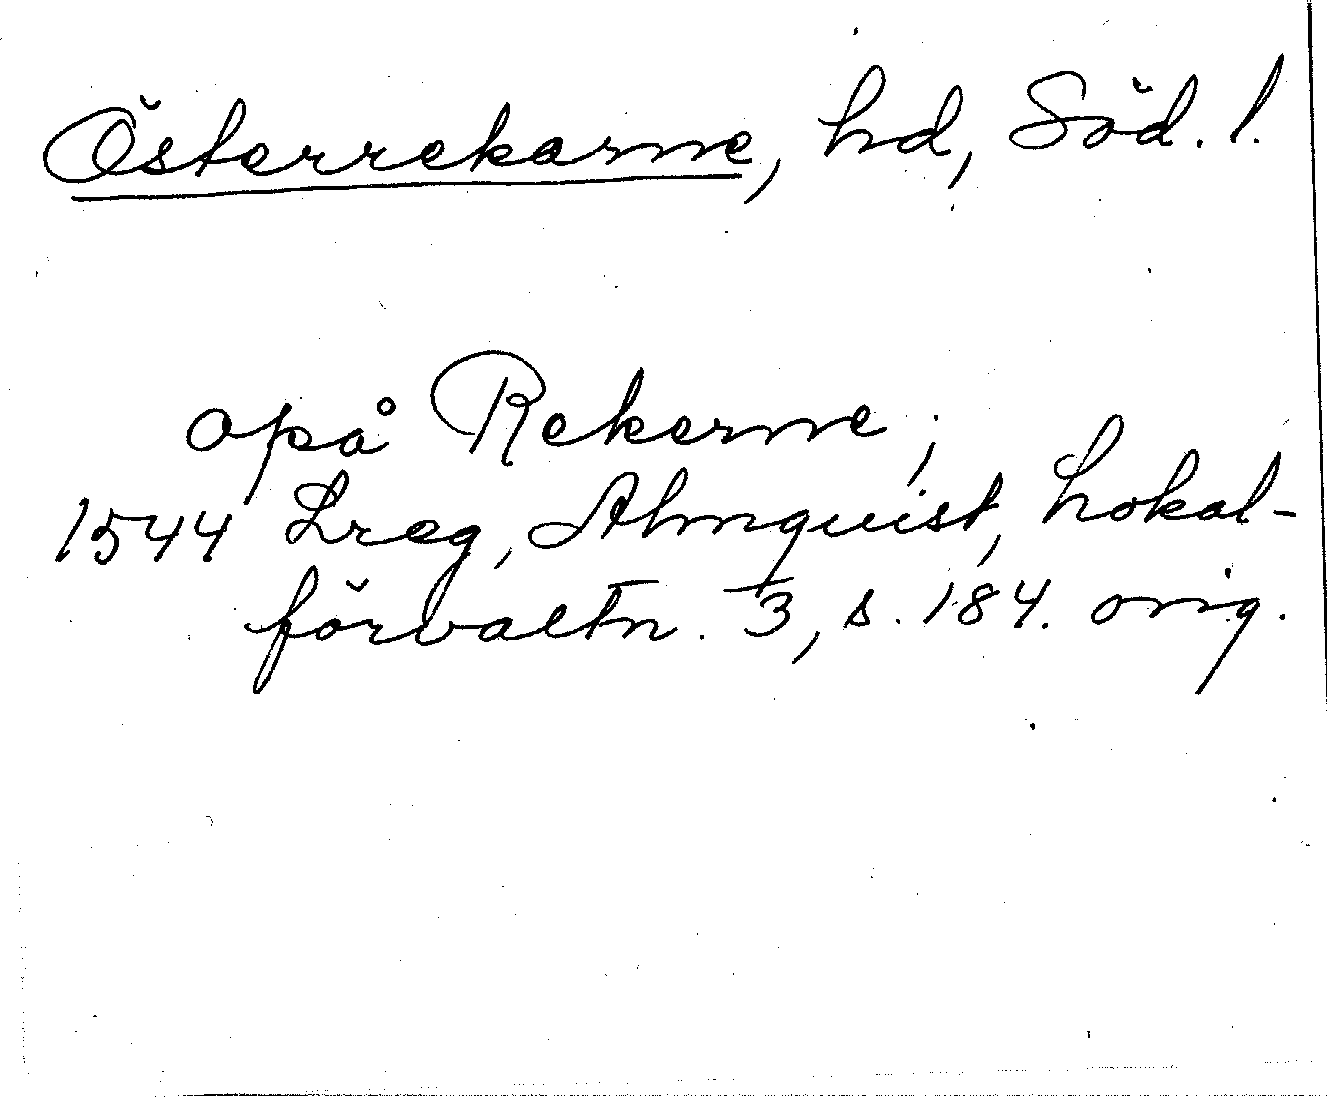 Österrekarne, hd, Söd. l.
opå Rekerne;
1544 Lreg, Almquist, Lokal-
förvaltn. 3, s. 184. orig.